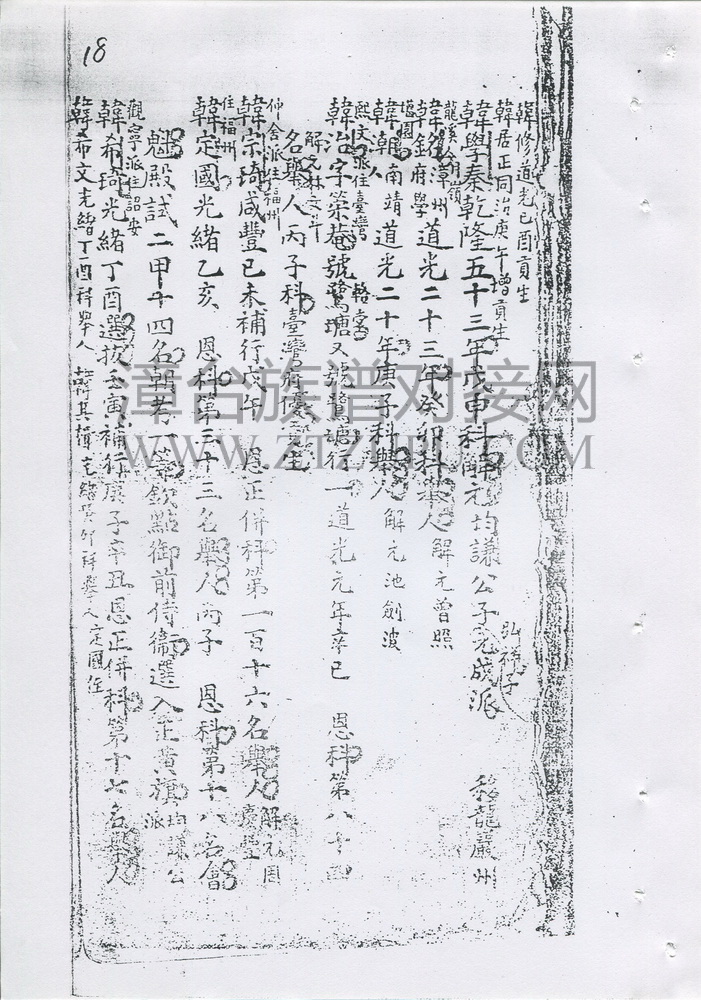 18
韓修道光己酉貢生
韓居正同治庚午增貢生
韓學泰乾隆五十三年戊申科解元均謙公子元成派 移龍巖州
弘祚子
龍溪翁嶺
韓銘漳州府學道光二十三年癸卯科舉人解元曾照
韓朝南靖道光二十年庚子科舉人解元池劍波
熙文派住臺灣
韓治字榮菴號鷺塘又號鷺塘行一道光元年辛巳 恩科第八十四
名舉人丙子科臺灣府優貢生
解元林文斗
仲舍派住福州
韓宗琦咸豐己未補行戊午 恩正併科第一百十六名舉人解元周慶豐
住福州
韓定國光緒乙亥 恩科第三十三名舉人丙子 恩科第十八名會
魁殿試二甲十四名朝考一等欽點御前侍衛選入正黃旗均謙公派
觀寧派住詔安
韓希琦光緒丁酉選拔壬寅補行庚子辛丑恩正併科第十七名舉人
韓希文光緒丁酉科舉人 韓其楫光緒癸卯科舉人定國侄
漳台族谱对接网
WWW.ZTZUPU.COM